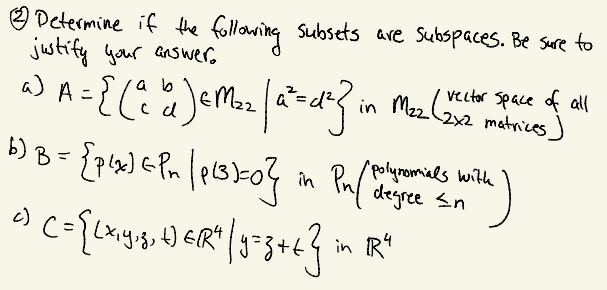 ② Determine if the following subsets are subspaces. Be sure to
justify your answer.
a) A = {(a b c d) ∈ M₂₂ | a² = d²} in M₂₂ (vector space of all 2x2 matrices)
b) B = {p(x) ∈ Pn | p(3)=0} in Pn (polynomials with degree ≤n)
c) C = {(x,y,z,t) ∈ ℝ⁴ | y=z+t} in ℝ⁴